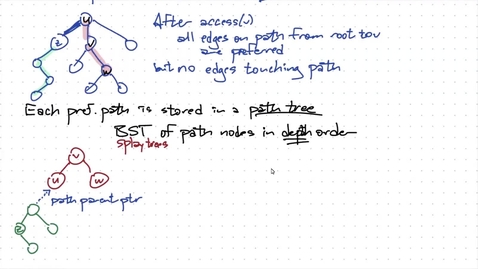 After access(v)
all edges on path from root to v
are preferred
but no edges touching path
u
z
v
w
Each pref. path is stored in a path tree
BST of path nodes in depth order
splay trees
v
u
w
path parent ptr
z